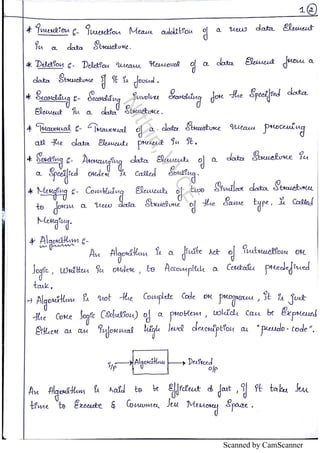 1 2
* Insertion :- Insertion Mean addition of a new data Element
in a data Structure.
* Deletion :- Deletion means Removal of a data Element from a
data Structure if it is found.
* Searching :- Searching Involve Searching for the Specified data
Element in a data Structure.
* Traversal :- Traversal of a data Structure mean processing
all the data Elements present in it.
* Sorting :- Arranging data Elements of a data Structure in
a Specified order is called Sorting.
* Merging :- Combining Elements of two Similar data Structures
to form a new data Structure of the Same type, is Called
Merging.
* Algorithm :-
An Algorithm is a finite set of instruction or
logic, written in order, to Accomplish a Certain predefined
task.
→ Algorithm is not the Complete Code or program, It is just
the Core logic (Solution) of a problem, which can be Expressed
Either as an informal high level description as "pseudo-code".
I/P → Algorithm → Desired
O/P
An Algorithm is said to be Efficient & fast, if it take less
time to Execute & Consumes less Memory Space.
Scanned by CamScanner